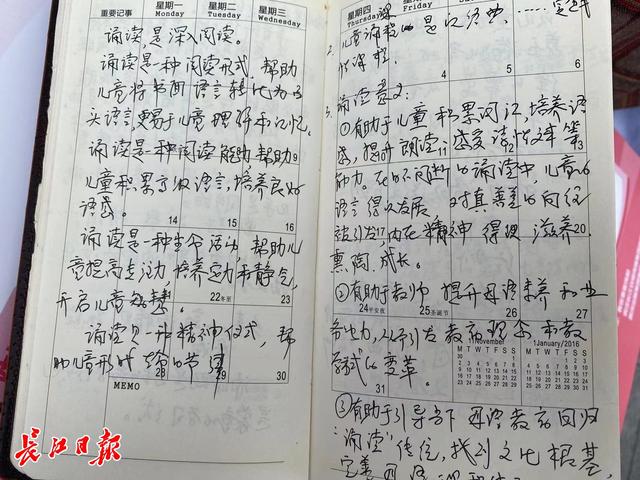 重要记事
星期一 Monday
星期二 Tuesday
星期三 Wednesday
诵读,是深入阅读。
诵读是一种阅读形式,帮助
儿童将书面语言转化为口
头语言,更易于儿童理解和记忆。
诵读是一种阅读能力,帮助
儿童积累高级语言,培养良好
语感。
诵读是一种生命活动,帮助儿
童提高专注力,培养定力和静气,
开启儿童智慧。
诵读是一种精神仪式,帮
助儿童形成生命的节律
9
14 15 16
22冬至 23
28 29 30
MEMO
星期四 Thursday
Friday
Saturday
Sunday
2. 儿童诵读
课程。
4 5 6
3. 诵读意义:
①有助于儿童积累词汇,培养语
感,提升朗读、感受、读懂文本等
能力。在日不间断的诵读中,儿童的
语言得以发展,对真善美的向往
被引发,内在精神得到滋养、
熏陶、成长。
②有助于教师提升母语素养和业
务能力,从而引发教育理念和教
学方式的变革。
③有助于引导当下母语教育回归
“诵读”传统,找到文化根基,
完善母语课程
11 12 13
17 20
24平安夜 25圣诞节 26 27
31
November
M T W T F S S
1January/2016
M T W T F S S
长江日报